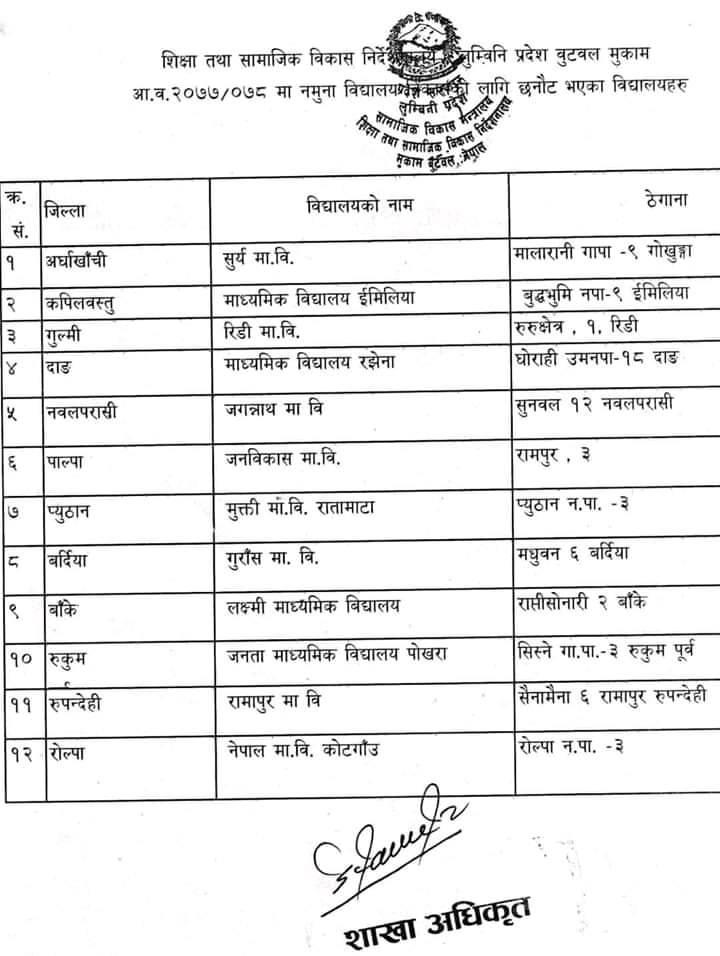 शिक्षा तथा सामाजिक विकास निर्देशनालय लुम्विनि प्रदेश वुटवल मुकाम
आ.व.२०७७/०७८ मा नमुना विद्यालय लागि छनौट भएका विद्यालयहरु
लुम्विनी प्रदेश
सामाजिक विकास मन्त्रालय
शिक्षा तथा सामाजिक विकास निर्देशनालय
मुकाम बुटवल, नेपाल
क्र. सं. जिल्ला विद्यालयको नाम ठेगाना
१ अर्घाखाँची सुर्य मा.वि. मालारानी गापा -९ गोखुङ्गा
२ कपिलवस्तु माध्यमिक विद्यालय ईमिलिया बुद्धभुमि नपा-९ ईमिलिया
३ गुल्मी रिडी मा.वि. रुरुक्षेत्र , १, रिडी
४ दाङ माध्यमिक विद्यालय रझेना घोराही उमनपा-१८ दाङ
५ नवलपरासी जगन्नाथ मा वि सुनवल १२ नवलपरासी
६ पाल्पा जनविकास मा.वि. रामपुर , ३
७ प्युठान मुक्ती मा.वि. रातामाटा प्युठान न.पा. -३
८ बर्दिया गुराँस मा. वि. मधुवन ६ बर्दिया
९ बाँके लक्ष्मी माध्यमिक विद्यालय राप्तीसोनारी २ बाँके
१० रुकुम जनता माध्यमिक विद्यालय पोखरा सिस्ने गा.पा.-३ रुकुम पूर्व
११ रुपन्देही रामापुर मा वि सैनामैना ६ रामापुर रुपन्देही
१२ रोल्पा नेपाल मा.वि. कोटगाँउ रोल्पा न.पा. -३
शाखा अधिकृत